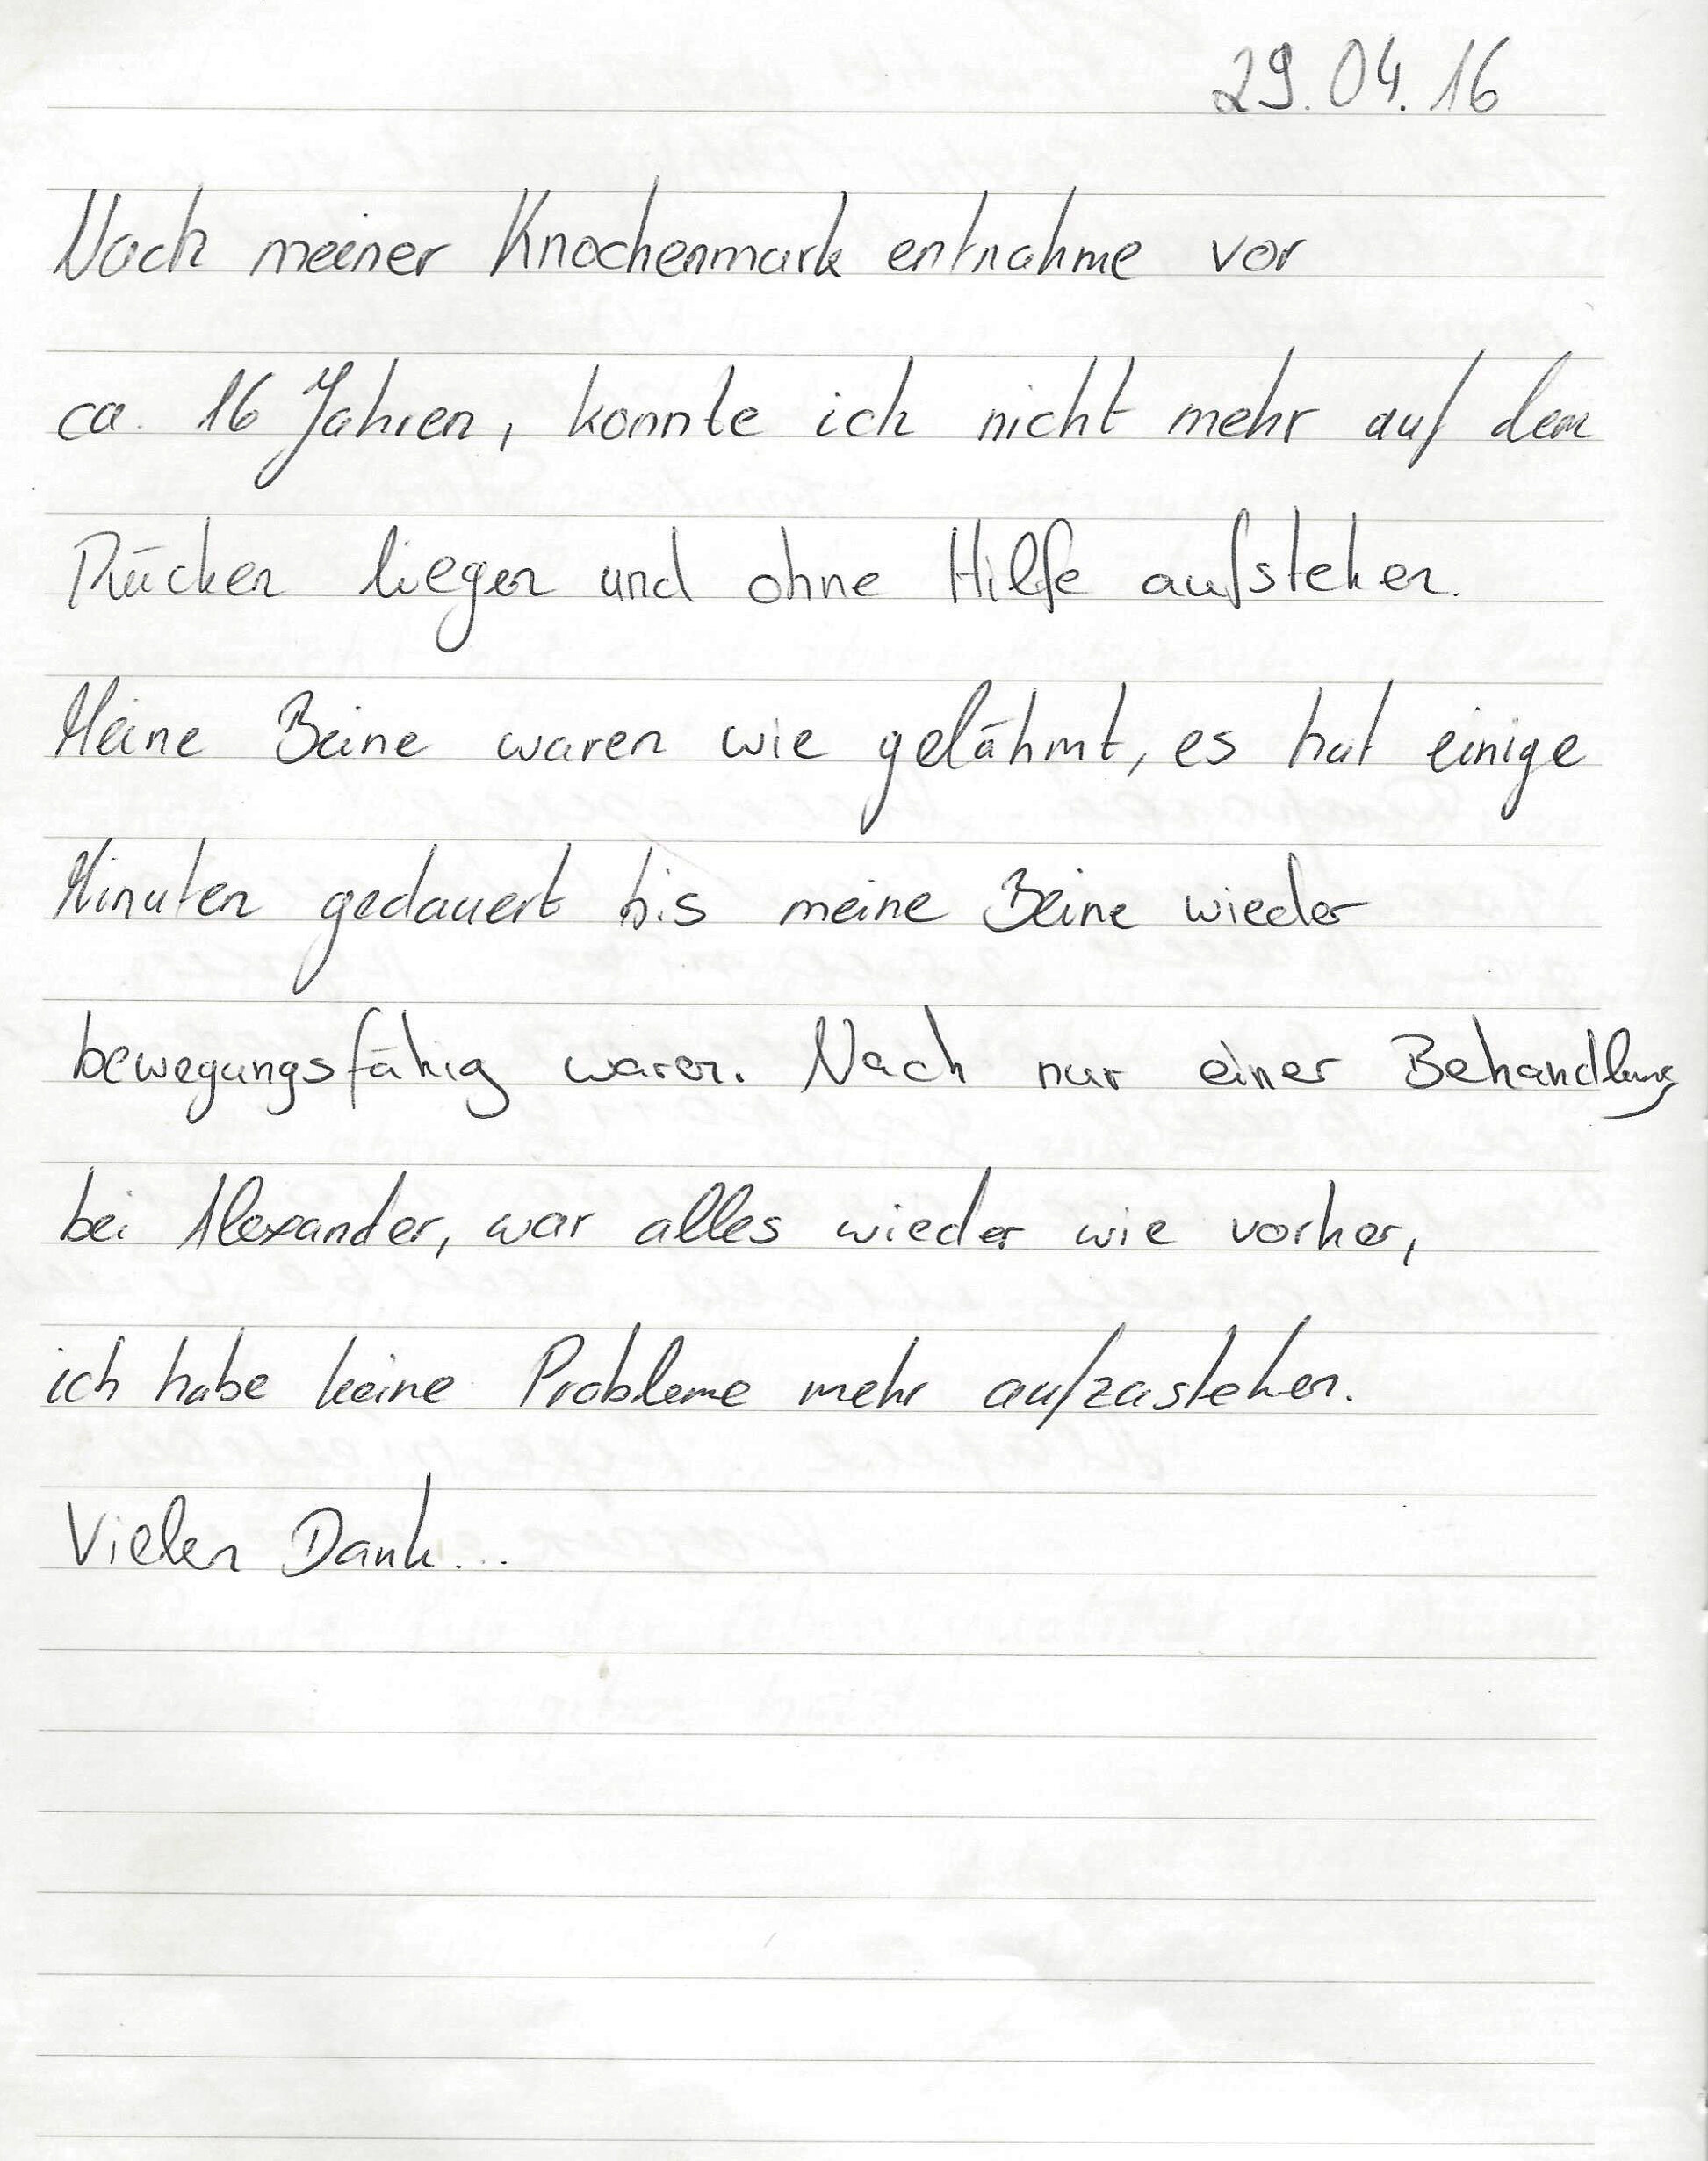 29.04.16
Nach meiner Knochenmark entnahme vor
ca. 16 Jahren, konnte ich nicht mehr auf dem
Rücken liegen und ohne Hilfe aufstehen.
Meine Beine waren wie gelähmt, es hat einige
Minuten gedauert bis meine Beine wieder
bewegungsfähig waren. Nach nur einer Behandlung
bei Alexander, war alles wieder wie vorher,
ich habe keine Probleme mehr aufzustehen.
Vielen Dank...